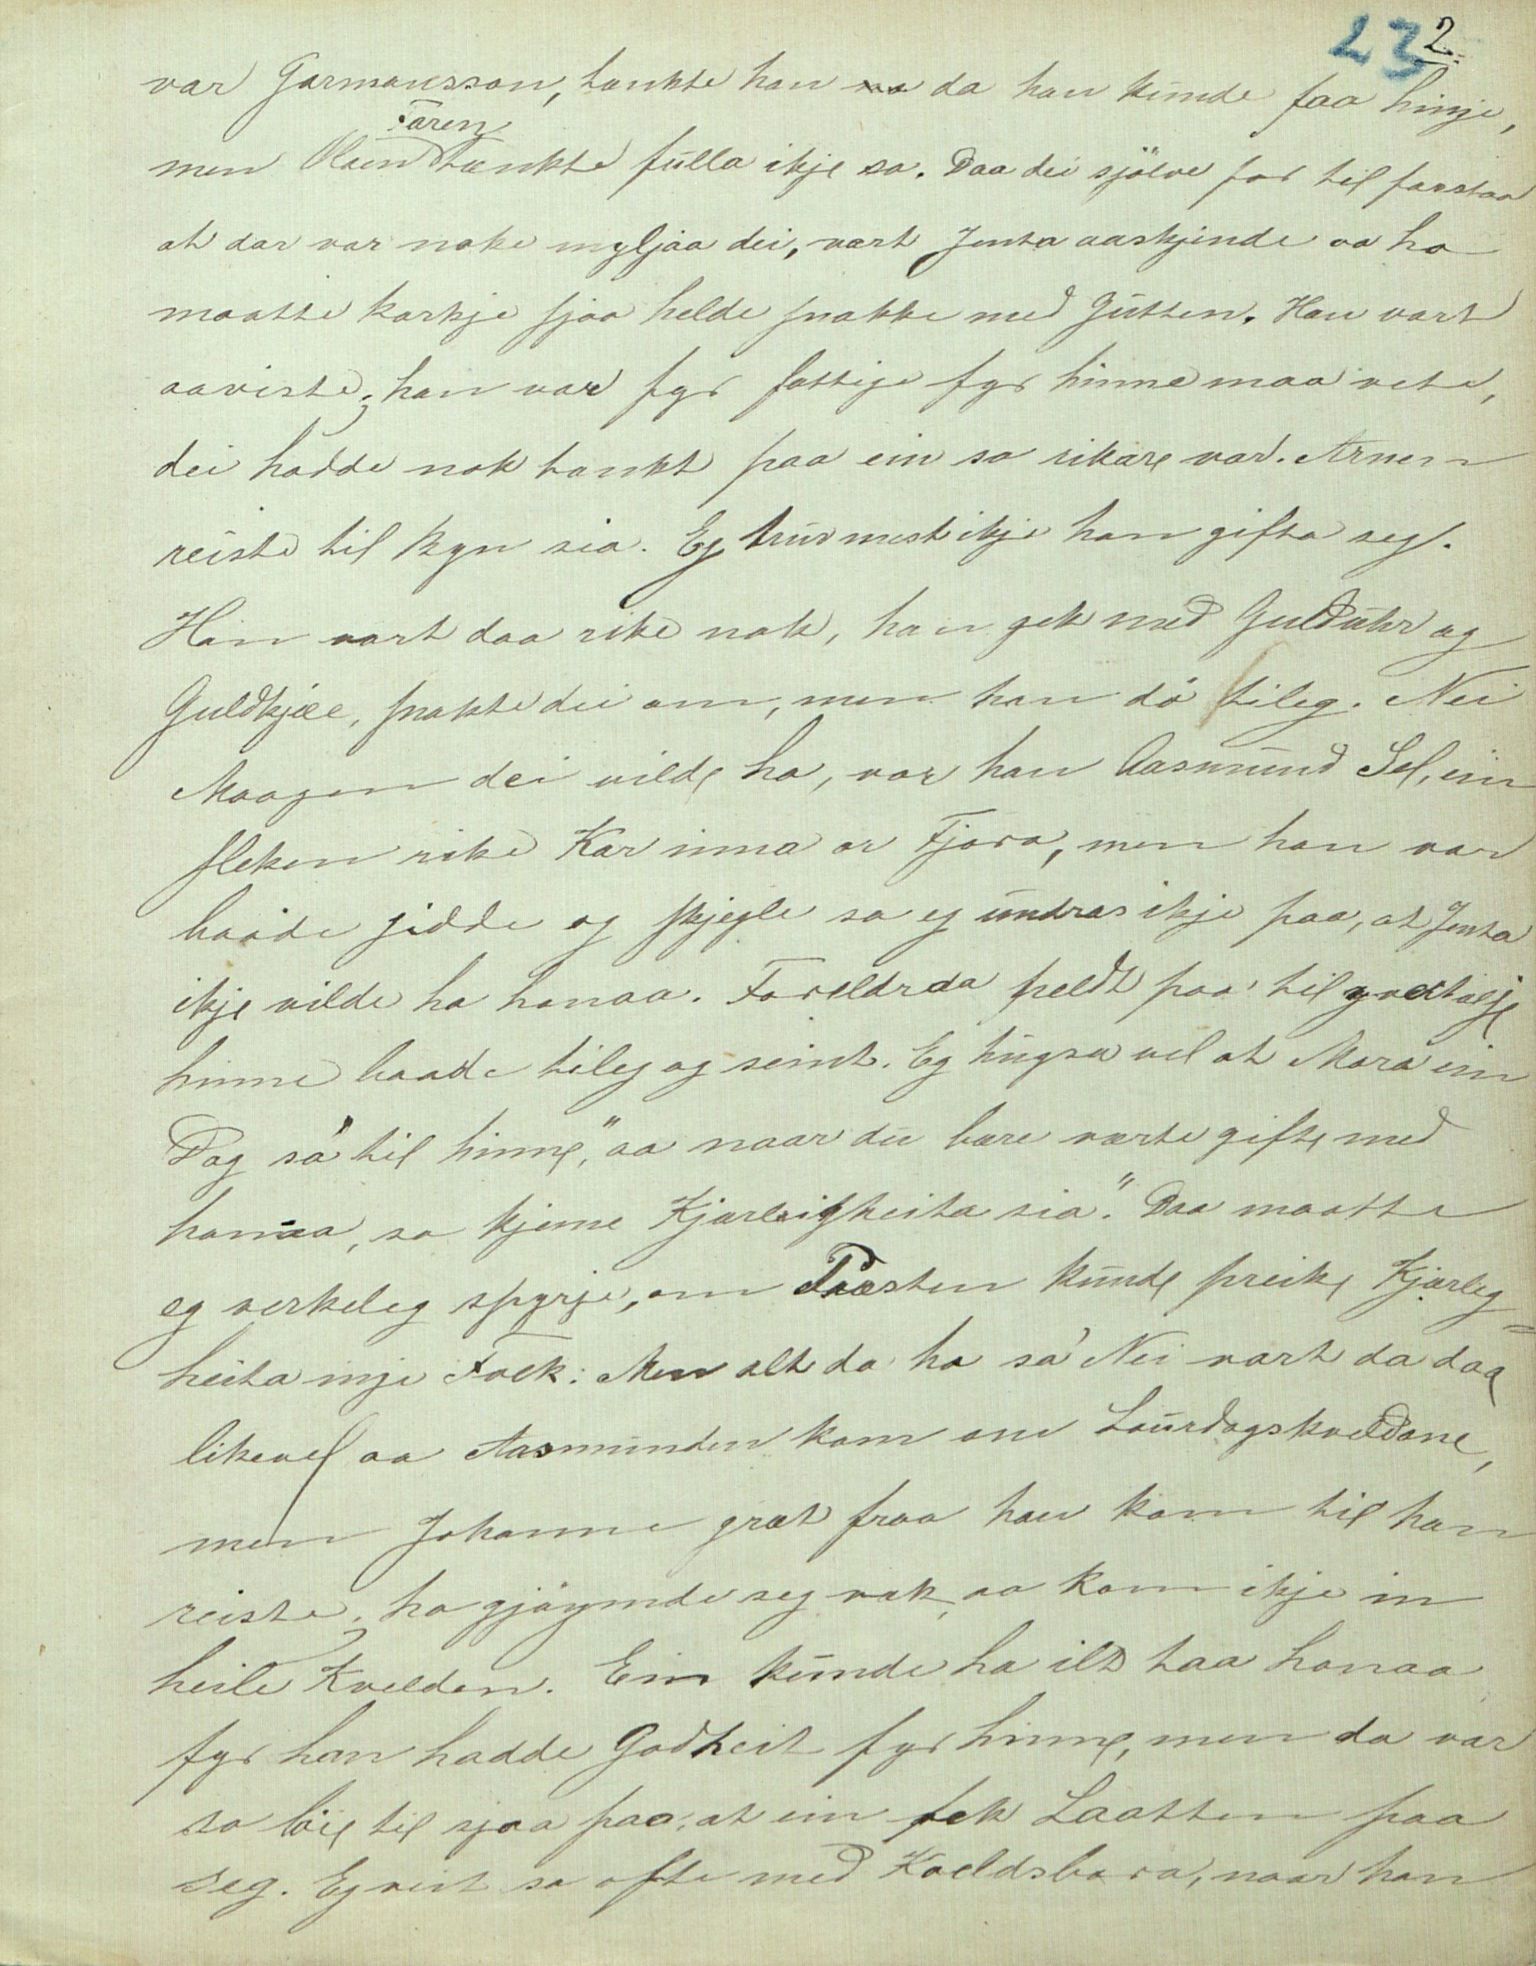 23 2.
var Garmansson, tankte han da han kunde faa hinje,
Faren
men tænkte fulla ikje so. Daa dei sjölve for til forstaa
at dar var noke mylljaa dei, vart Jenta aaskjende aa ho
maatte korkje sjaa helde snakke med Gutten. Han vart
aaviste; han var fyr fattige fyr hinne maa vete,
dei hadde nok tankt paa ein so rikare var. Arnen
reiste til Byn sia. Eg truv mest ikje han gifta seg.
Han vart daa rike nok, han gek med Gulduhr og
Guldkjæe, snakte dei om, men han dö tileg. Nei
Maagen dei vilde ha, var han Aasmund Sel, ein
sleken rike Kar inna or Fjora, men han var
baade jidde og skjegle so eg undras ikje paa, at Jenta
ikje vilde ha honaa. Foreldrda heldt paa til
hinne baade tileg og seint. Eg hugsa vel at Mora ein
Dag sa' til hinne, "aa naar du bare verte gifte med
honaa, so kjeme Kjærleigheita sia". Daa maatte
eg verkeleg spyrje, om Præsten kunde preike Kjærleg=
heita inji Folk. Men alt da ho sa' Nei vart da daa
likevel aa Aasmunden kom om Laurdagskveldane,
men Johanne græt fraa han kom til han
reiste, ho gjöymde seg væk, aa kom ikje in
heile Kvelden. Ein kunde ha ilt taa honaa
fyr han hadde Godheit fyr hinne, men da var
so löie til sjaa paa, at ein fek Laatten paa
seg. Eg veit so ofte med Kveldsbora, naar han